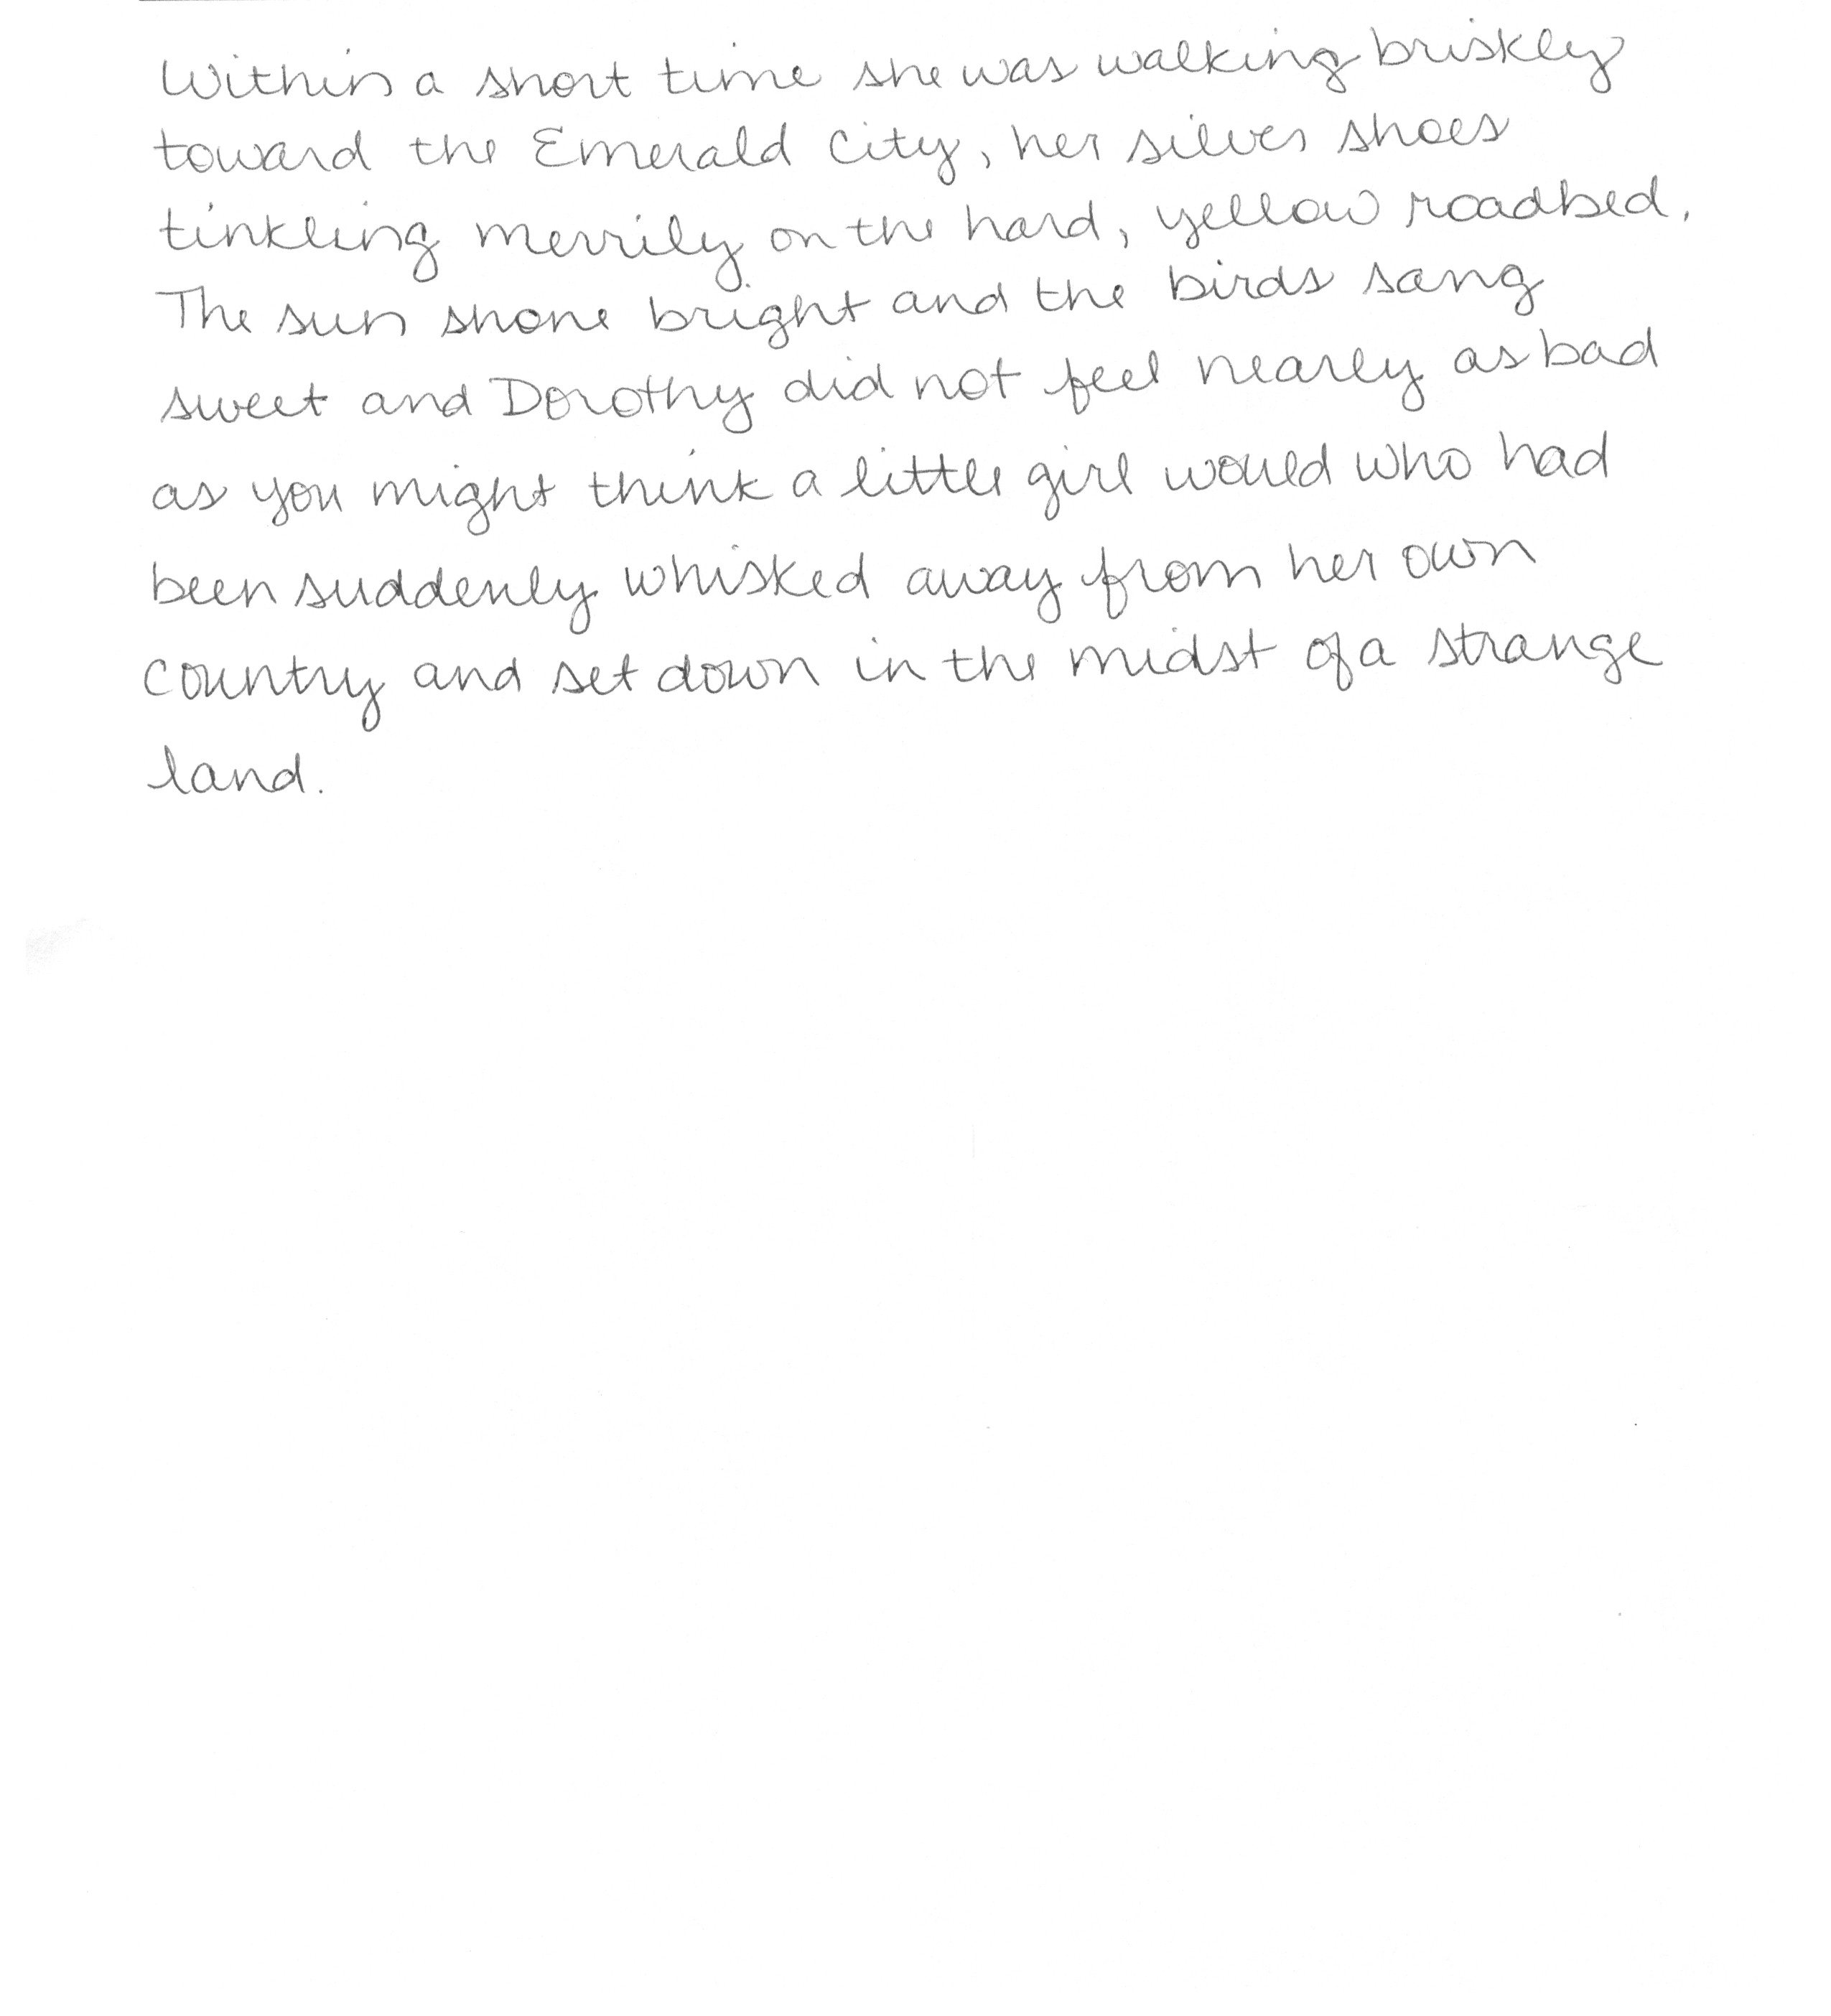 Within a short time she was walking briskley
toward the Emerald City, her silver shoes
tinkling merrily on the hard, yellow roadbed.
The sun shone bright and the birds sang
sweet and Dorothy did not feel nearly as bad
as you might think a little girl would who had
been suddenly whisked away from her own
country and set down in the midst of a strange
land.